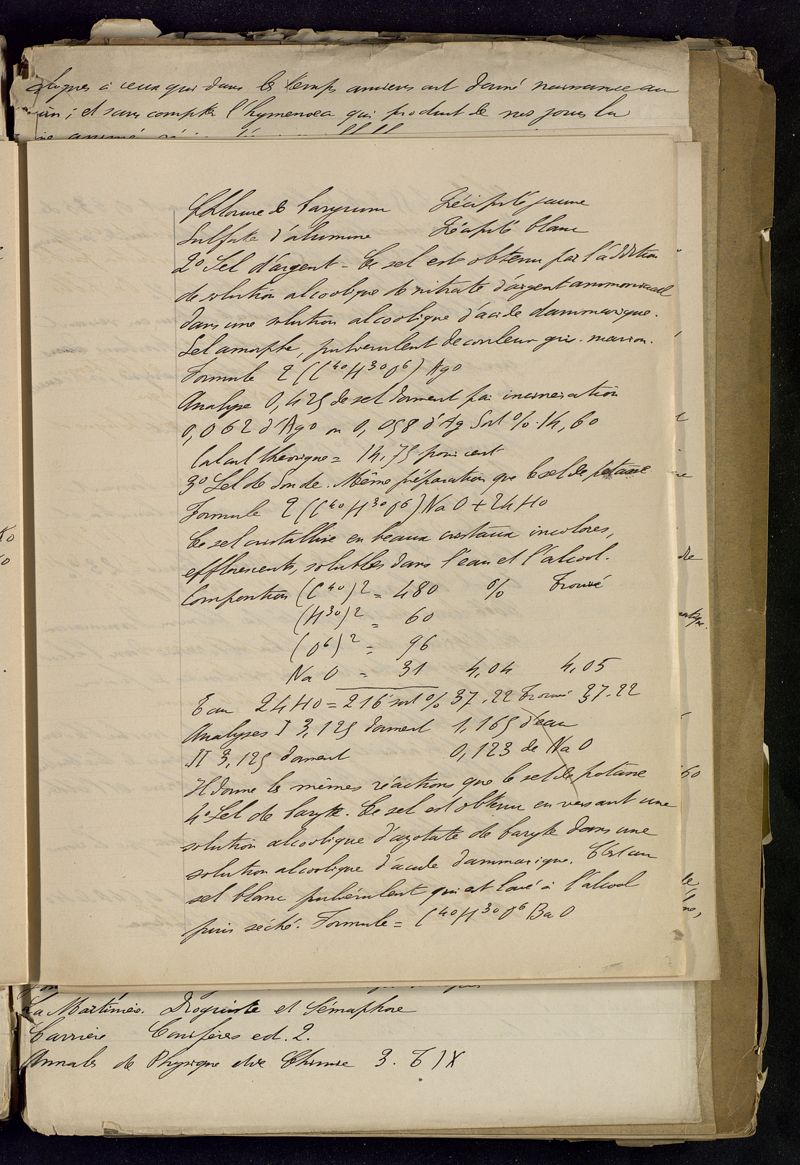 à ceux qui dans les temps anciens ont donné naissance au
; et sans compter l'hymenoea qui produit de nos jours la
Chlorure de baryum Précipité jaune
Sulfate d'alumine Précipité blanc
2º Sel d'argent - Ce sel est obtenu par l'addition
de solution alcoolique de nitrate d'argent ammoniacal
dans une solution alcoolique d'acide dammarique.
Sel amorphe, pulvérulent de couleur gris-marron.
Formule 2 (C⁴⁰H³⁰O⁶) AgO
Analyse 0,425 de sel donnent par incinération
0,062 d'AgO ou 0,058 d'Ag Soit % 14,60
Calcul théorique = 14,75 pour cent
3º Sel de Soude. Même préparation que le sel de potasse
Formule 2 (C⁴⁰H³⁰O⁶) NaO + 24HO
Ce sel cristallise en beaux cristaux incolores,
efflorescents, solubles dans l'eau et l'alcool.
Composition (C⁴⁰)² = 480 % Trouvé
(H³⁰)² = 60
(O⁶)² = 96
NaO = 31 4,04 4,05
Eau 24HO = 216 soit % 37.22 Trouvé 37.22
Analyses I 3,125 donnent 1,165 d'eau
II 3,125 donnent 0,123 de NaO
Il donne les mêmes réactions que le sel de potasse
4º Sel de baryte. Ce sel est obtenu en versant une
solution alcoolique d'azotate de baryte dans une
solution alcoolique d'acide dammarique. C'est un
sel blanc pulvérulent qui est lavé à l'alcool
puis séché. Formule = C⁴⁰H³⁰O⁶BaO
La Martinière. Droguiste et Sémaphore
Carrière Conifères ed. 2.
Annales de Physique et de Chimie 3. T IX